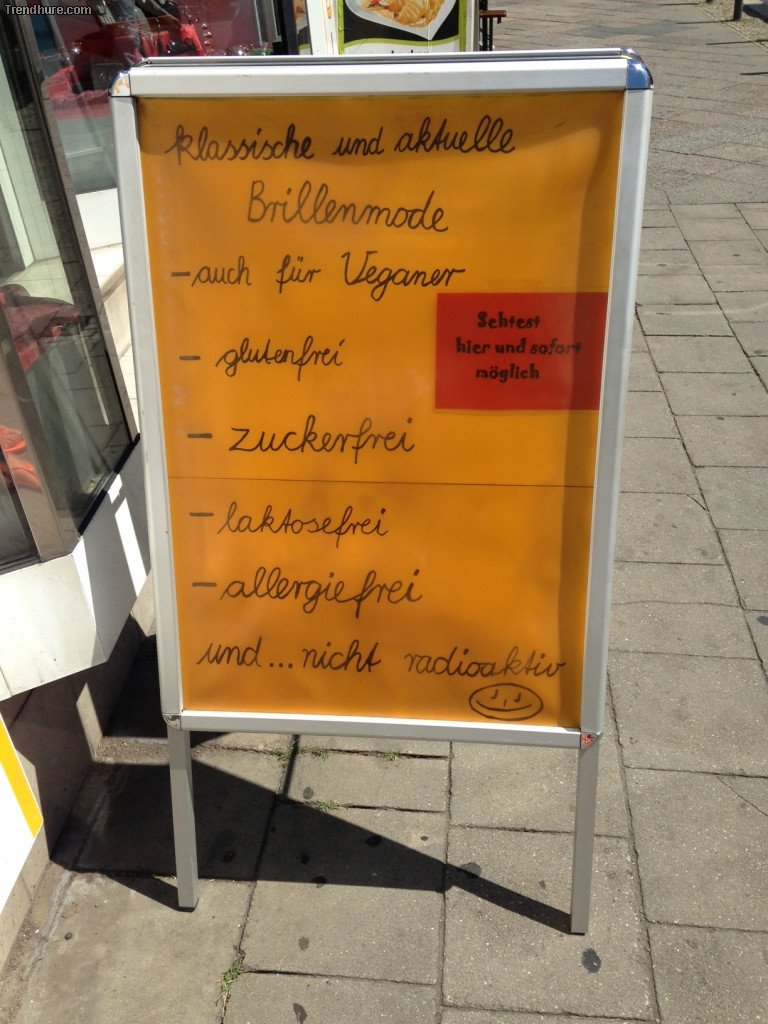 Trendhure.com
klassische und aktuelle
Brillenmode
- auch für Veganer
- glutenfrei
Sehtest
hier und sofort
möglich
- zuckerfrei
- laktosefrei
- allergiefrei
und... nicht radioaktiv